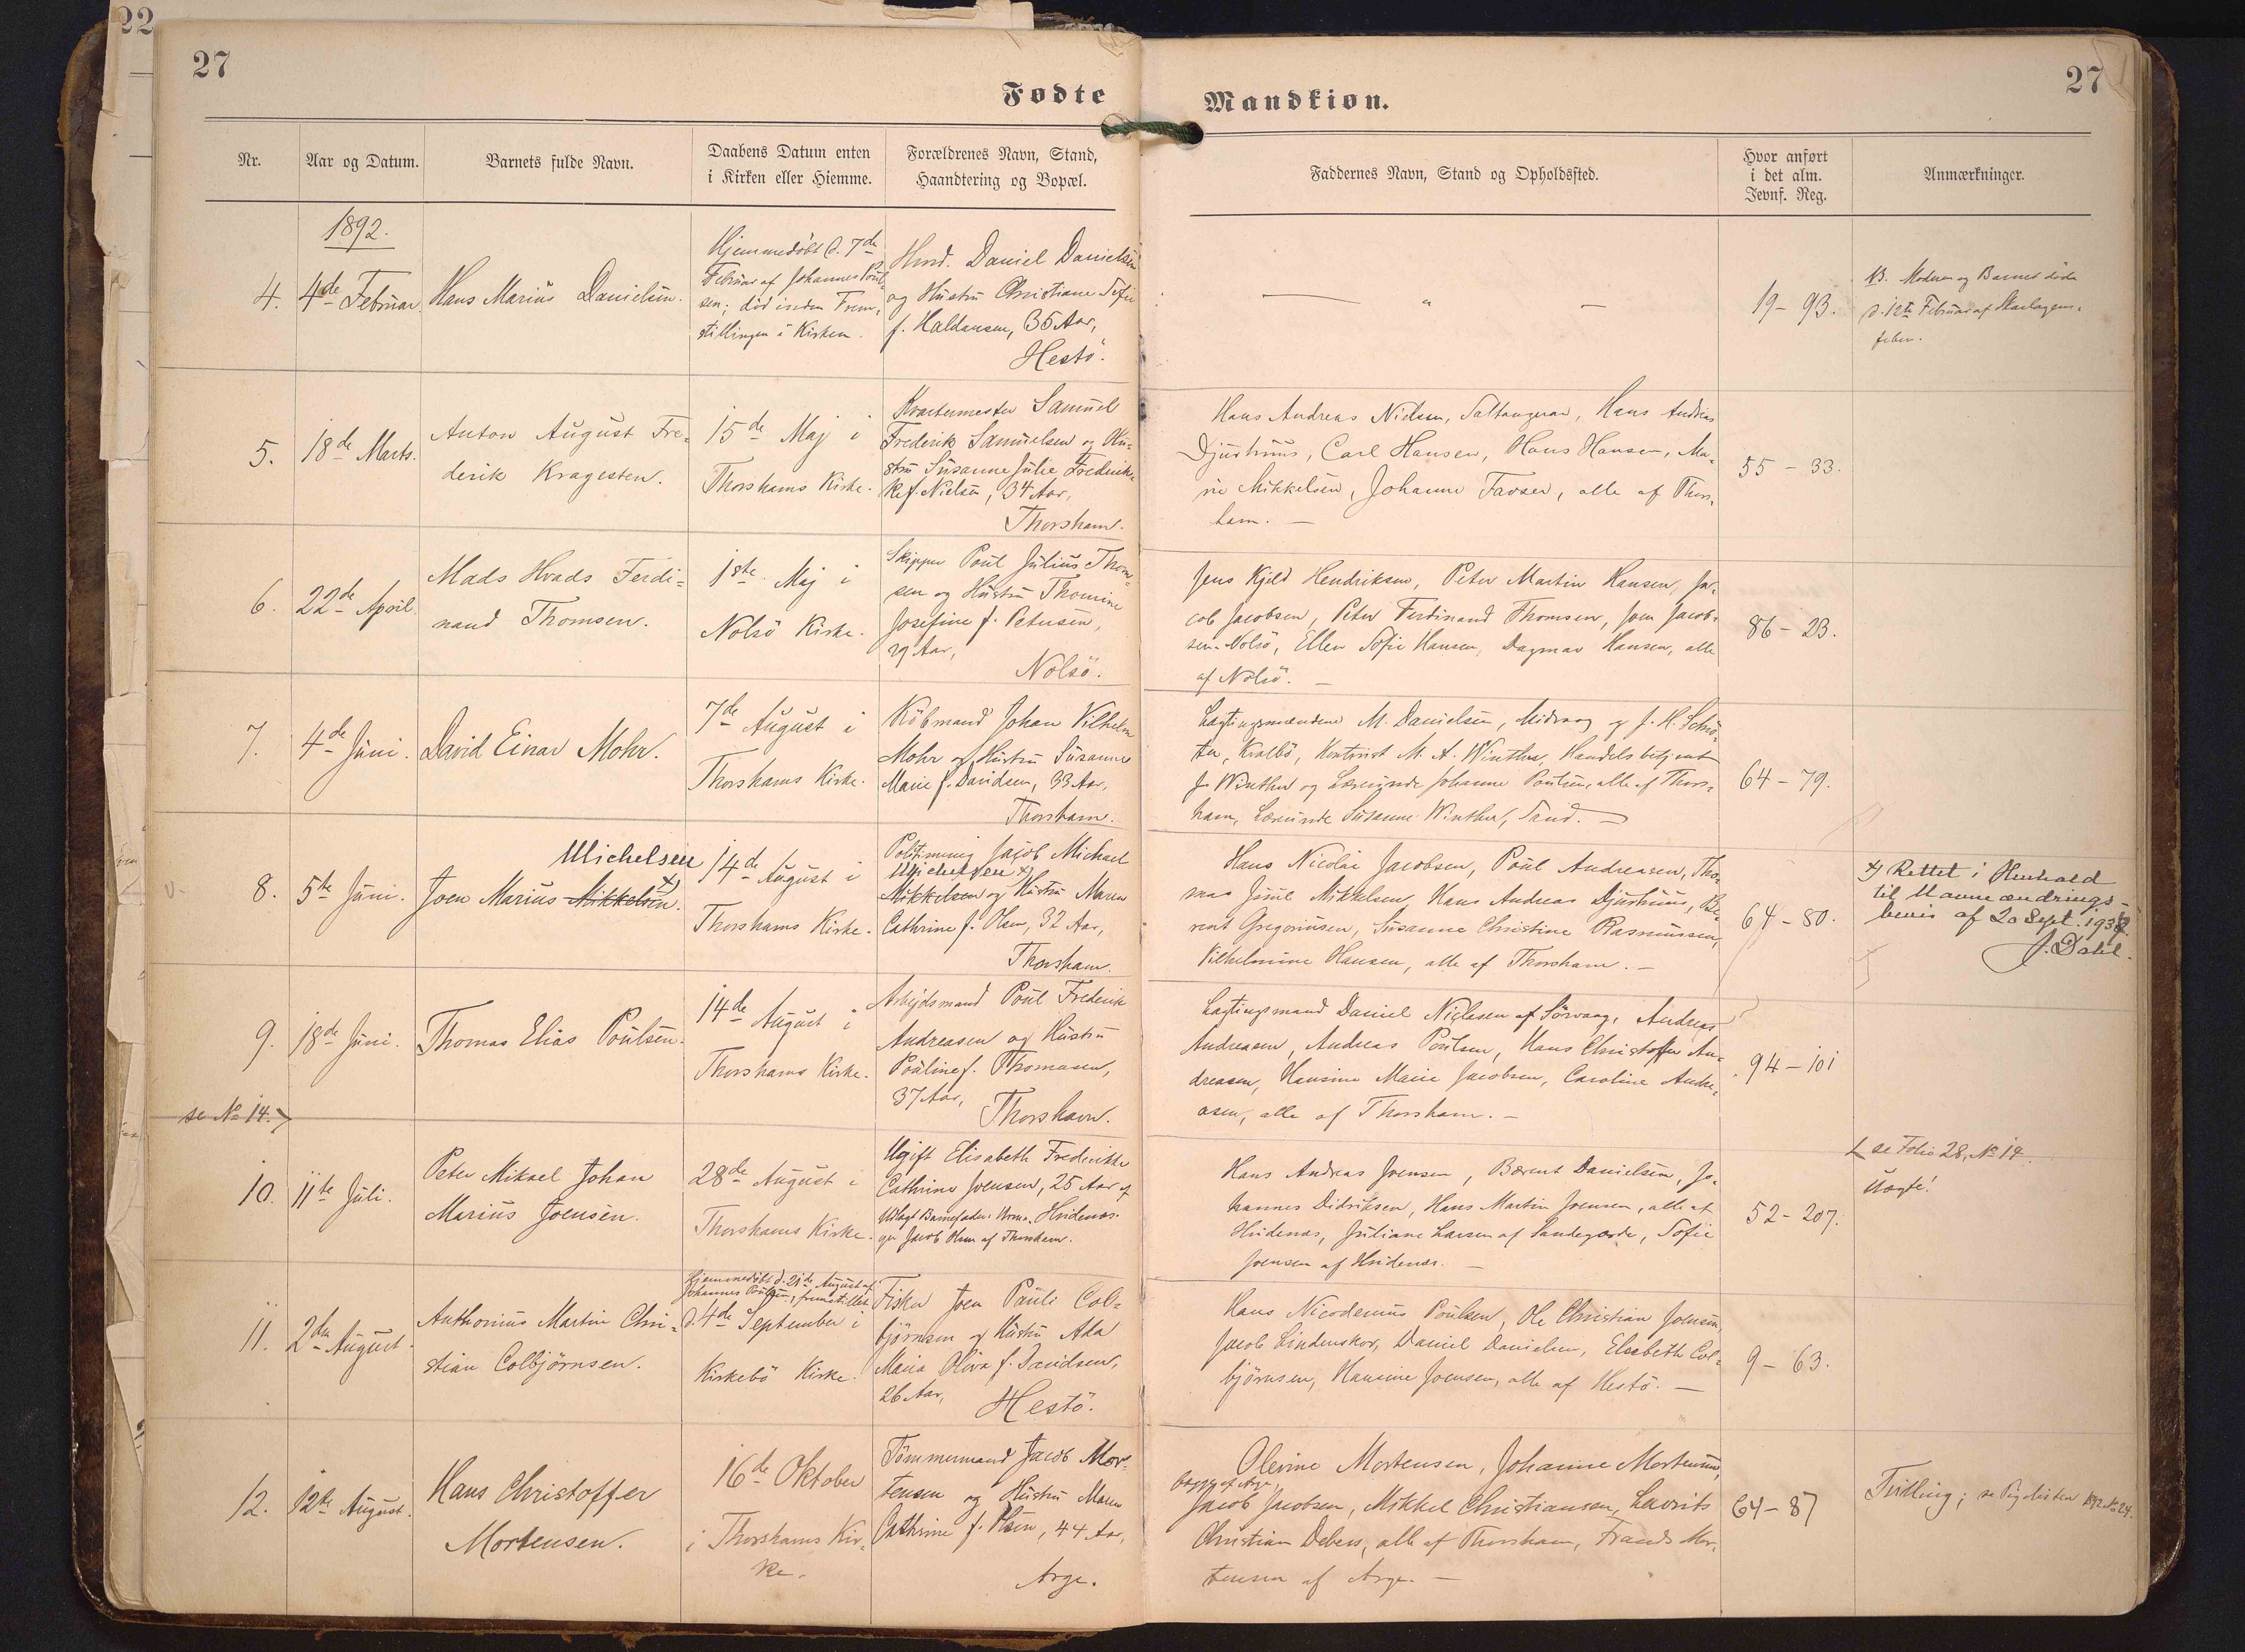 22
27
Fødte
Mandkiøn.
27
Nr.
Aar og Datum.
Barnets fulde Navn.
Daabens Datum enten
i Kirken eller Hiemme.
Forældrenes Navn, Stand,
Haandtering og Bopæl.
Faddernes Navn, Stand og Opholdssted.
Hvor anført
i det alm.
Jevnf. Reg.
Anmærkninger.
1892.
4.
4de Februar
Hans Marius Danielsen.
Hjemmedöbt d. 7de
Februar af Johannes Poul-
sen; död inden Frem-
stillingen i Kirken.
Hmd. Daniel Danielsen
og Hustru Christiane Sofie
f. Haldansen, 35 Aar,
Hestö.
— " —
19 - 93.
NB. Moderen og Barnet döde
d. 12te Februar af Skarlagens-
feber.
5.
18de Marts.
Anton August Fre-
derik Kragesten.
15de Maj i
Thorshavns Kirke.
Kvartermester Samuel
Frederik Samuelsen og Hu-
stru Susanne Julie Frederik-
ke f. Nielsen, 34 Aar,
Thorshavn.
Hans Andreas Nielsen, Saltangerar, Hans Andreas
Djurhuus, Carl Hansen, Hans Hansen, Ma-
rie Mikkelsen, Johanne Tavsen, alle af Thors-
havn. —
55 - 33.
6.
22de April.
Mads Hvads Ferdi-
nand Thomsen.
1ste Maj i
Nolsö Kirke.
Skipper Poul Julius Thom-
sen og Hustru Thomine
Josefine f. Petersen,
29 Aar,
Nolsö.
Jens Kjeld Hendriksen, Peter Martin Hansen, Ja-
cob Jacobsen, Peter Ferdinand Thomsen, Joen Jacob-
sen Nolsö, Ellen Sofie Hansen, Dagmar Hansen, alle
af Nolsö. —
86 - 23.
7.
4de Juni.
David Einar Mohr.
7de August i
Thorshavns Kirke.
Köbmand Johan Vilhelm
Mohr og Hustru Susanne
Marie f. Davidsen, 33 Aar,
Thorshavn.
Lagtingsmændene M. Danielsen, Midvaag og J. H. Schrö-
ter, Kvalbö, Kontorist M. A. Winther, Handelsbetjent
J. Winther og Lærerinde Johanne Poulsen, alle af Thors-
havn, Lærerinde Susanne Winther, Sand. —
64 - 79.
8.
5te Juni.
Michelsen
Joen Marius Mikkelsen. x)
14de August i
Thorshavns Kirke.
Jacob Michael
Michelsen x)
Mikkelsen og Hustru Maren
Cathrine f. Olsen, 32 Aar,
Thorshavn.
Hans Nicolai Jacobsen, Poul Andreasen, Tho-
mas Juul Mikkelsen, Hans Andreas Djurhuus, Be-
rent Gregoriussen, Susanne Christine Rasmussen,
Vilhelmine Hansen, alle af Thorshavn. —
64 - 80.
x) Rettet i Henhold
til Navneændrings-
bevis af 20 Sept.
J. Dahl.
9.
18de Juni.
Thomas Elias Poulsen.
14de August i
Thorshavns Kirke.
Arbejdsmand Poul Frederik
Andreasen og Hustru
Pouline f. Thomasen,
37 Aar,
Thorshavn.
Lagtingsmand Daniel Niclasen af Sörvaag, Andreas
Andreasen, Andreas Poulsen, Hans Christoffer An-
dreasen, Hansine Marie Jacobsen, Caroline Andre-
asen, alle af Thorshavn. —
94 - 101
se No 14.
10.
11te Juli.
Peter Mikael Johan
Marius Joensen.
28de August i
Thorshavns Kirke.
Ugift Elisabeth Frederikke
Cathrine Joensen, 25 Aar af
Hvidenæs.
Udlagt Barnefader:
Jacob Olsen af Thorshavn.
Hans Andreas Joensen, Bærent Danielsen, Jo-
hannes Didriksen, Hans Martin Joensen, alle af
Hvidenæs, Juliane Larsen af Sandegærde, Sofie
Joensen af Hvidenæs. —
52 - 207.
se Folio 28, No 14.
Uægte!
11.
2den August.
Anthonius Martin Chri-
stian Colbjörnsen.
Hjemmedöbt d. 21de August af
Johannes Poulsen, fremstillet
d. 4de September i
Kirkebö Kirke.
Fisker Joen Pauli Col-
björnsen og Hustru Ada
Maria Olivia f. Davidsen,
26 Aar,
Hestö.
Hans Nicodemus Poulsen, Ole Christian Joensen,
Jacob Lindenskov, Daniel Danielsen, Elsebeth Col-
björnsen, Hansine Joensen, alle af Hestö. —
9 - 63.
12.
12te August.
Hans Christoffer
Mortensen.
16de Oktober
i Thorshavns Kir-
ke.
Tömmermand Jacob Mor-
tensen og Hustru Maren
Cathrine f. Olsen, 44 Aar,
Arge.
Olevine Mortensen, Johanne Mortensen,
begge af Arge,
Jacob Jacobsen, Mikkel Christiansen, Lavrits
Christian Debess, alle af Thorshavn, Frands Mor-
tensen af Arge. —
64 - 87
Tvilling; se Pigelisten 1892 No 24.